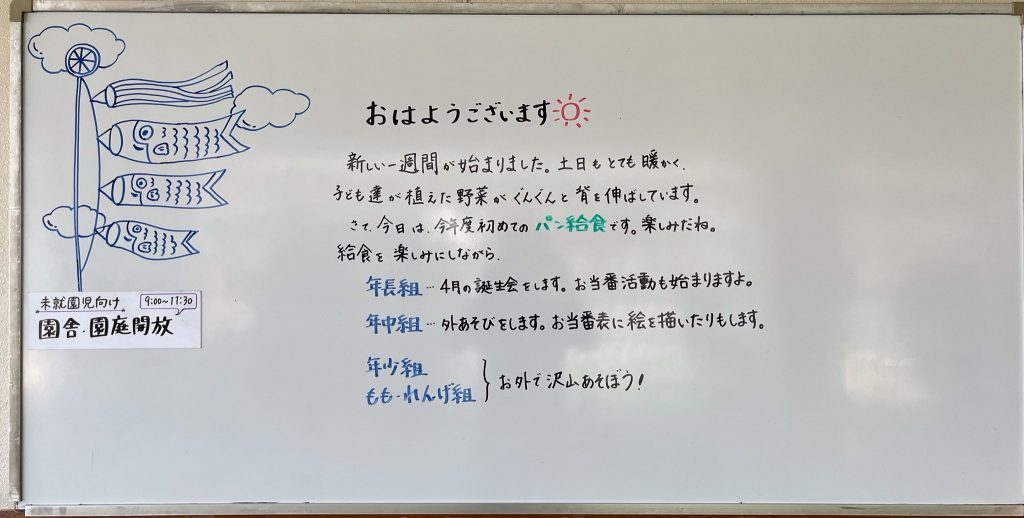 おはようございます
新しい一週間が始まりました。土日もとても暖かく、
子ども達が植えた野菜がぐんぐんと背を伸ばしています。
さて、今日は、今年度初めてのパン給食です。楽しみだね。
給食を楽しみにしながら、
年長組…4月の誕生会をします。お当番活動も始まりますよ。
年中組…外あそびをします。お当番表に絵を描いたりもします。
年少組
もも・れんげ組
お外で沢山あそぼう!
未就園児向け 9:00~11:30
園舎・園庭開放